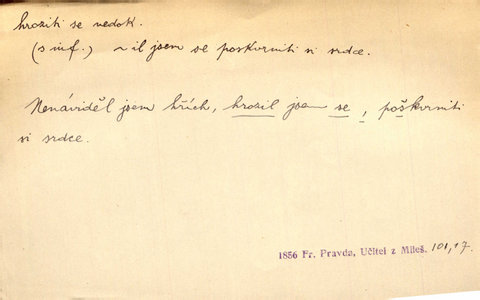 hroziti se nedok.
(s inf.) ~il jsem se poskvrniti si srdce.
Nenáviděl jsem hřích, hrozil jsem se, poškvrniti
si srdce.
1856 Fr. Pravda, Učitel z Mileš. 101,17.